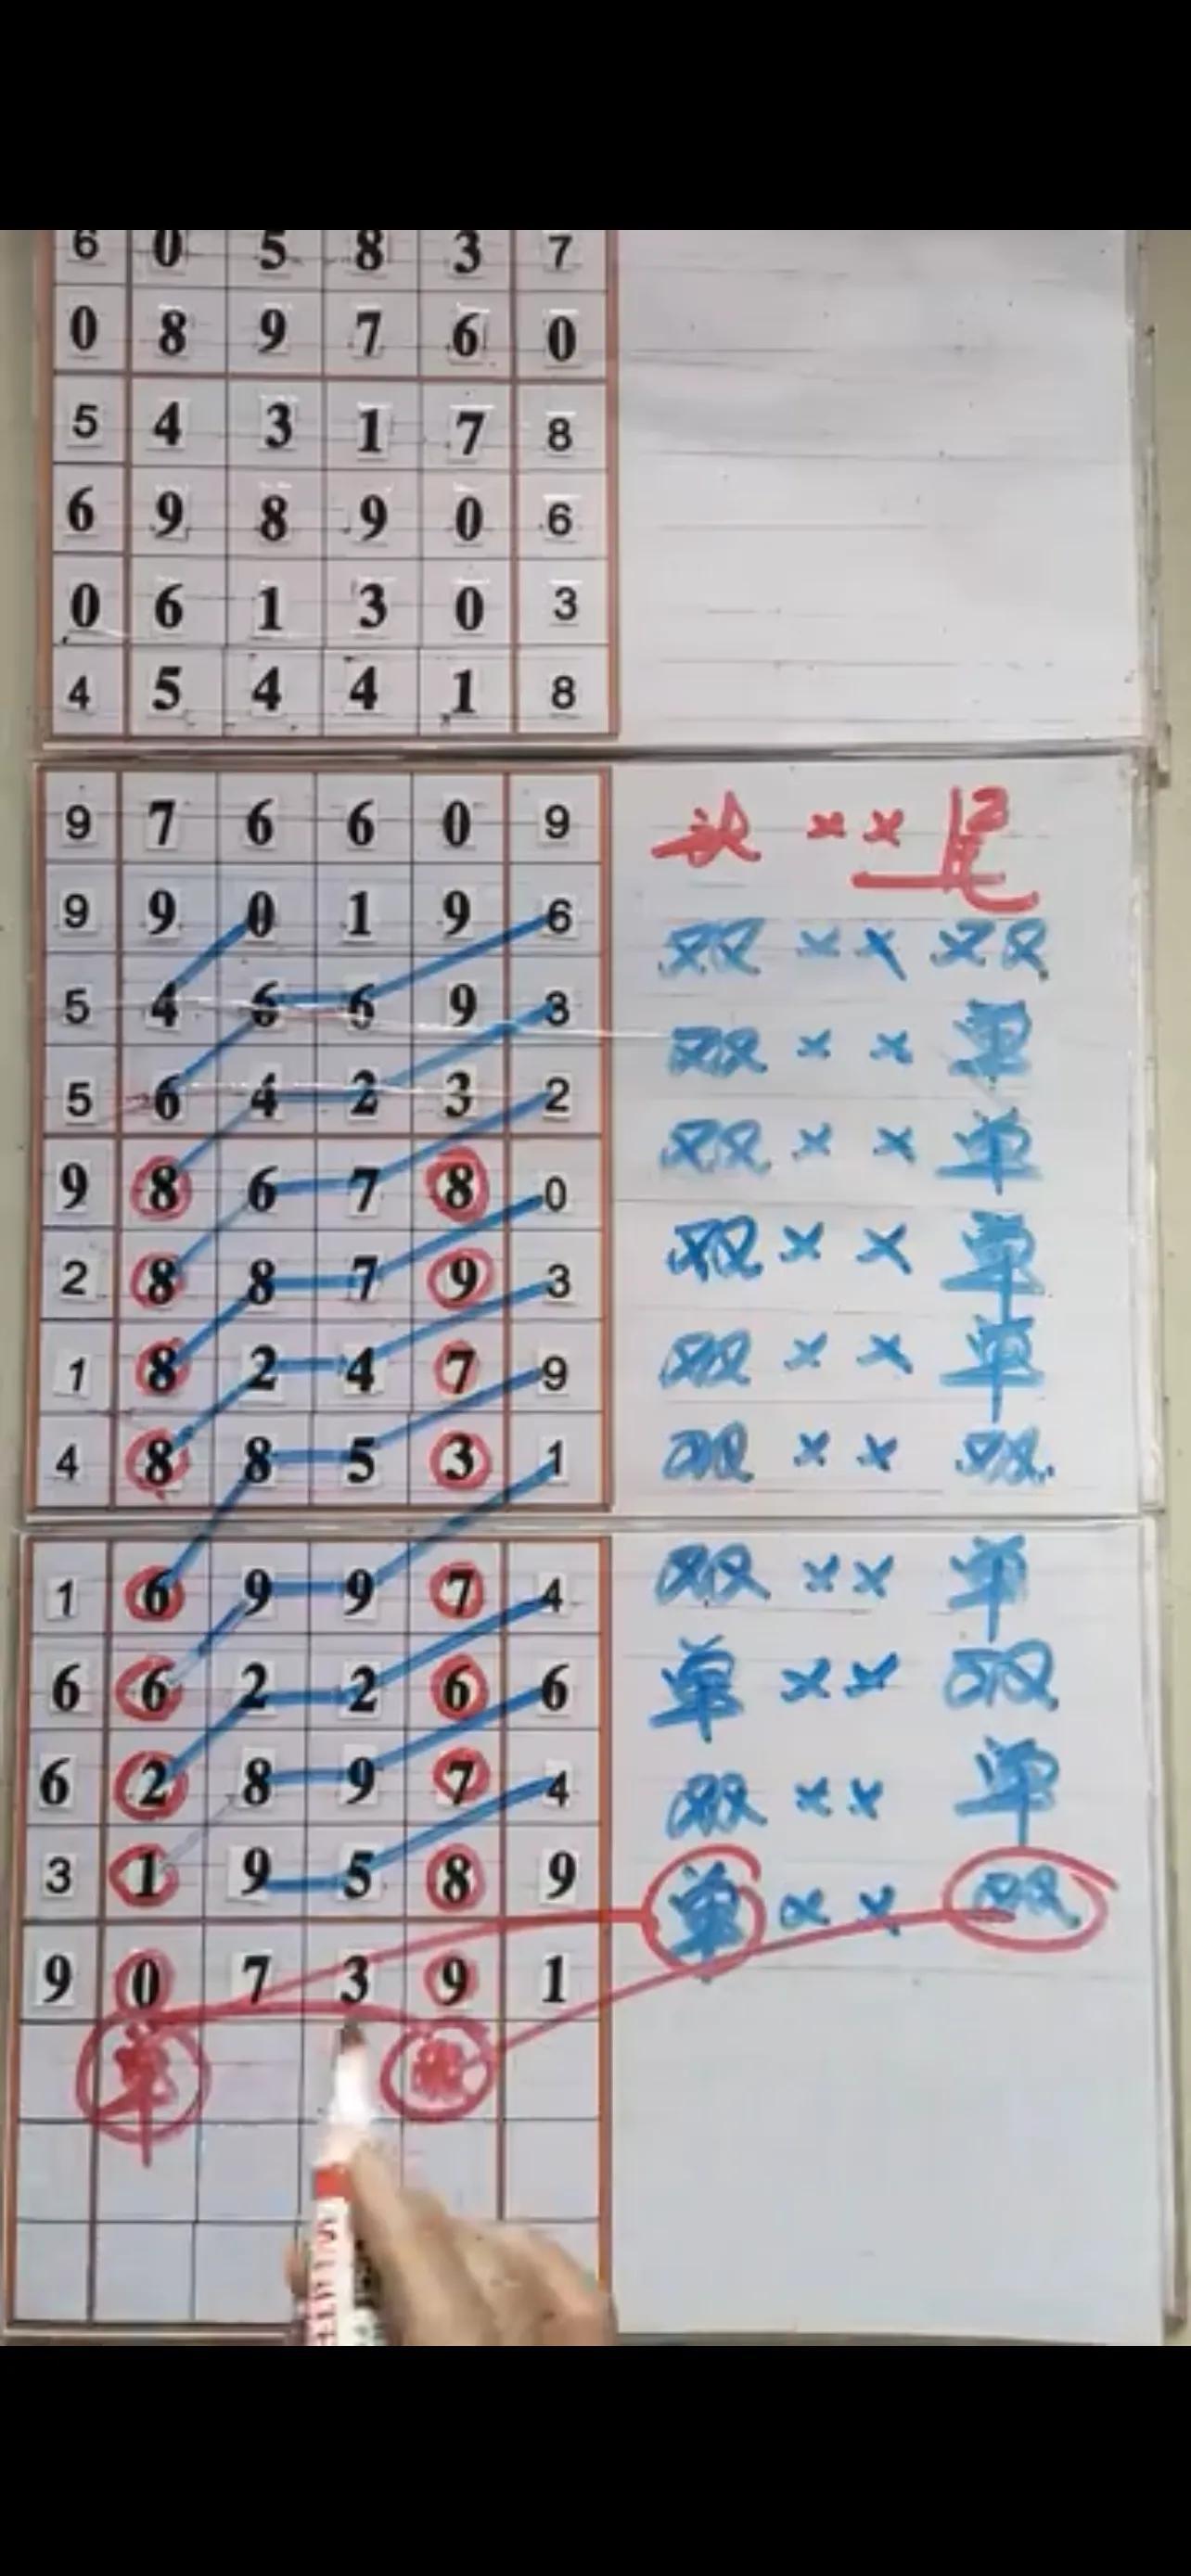 6 0 5 8 3 7
0 8 9 7 6 0
5 4 3 1 7 8
6 9 8 9 0 6
0 6 1 3 0 3
4 5 4 4 1 8
9 7 6 6 0 9 × × 尾
9 9 0 1 9 6 双 × × 双
5 4 6 6 9 3 双 × × 单
5 6 4 2 3 2 双 × × 单
9 8 6 7 8 0 双 × × 单
2 8 8 7 9 3 双 × × 单
1 8 2 4 7 9 双 × × 双
4 8 8 5 3 1
1 6 9 9 7 4 双 × × 单
6 6 2 2 6 6 单 × × 双
6 2 8 9 7 4 双 × × 单
3 1 9 5 8 9 单 × × 双
9 0 7 3 9 1
单